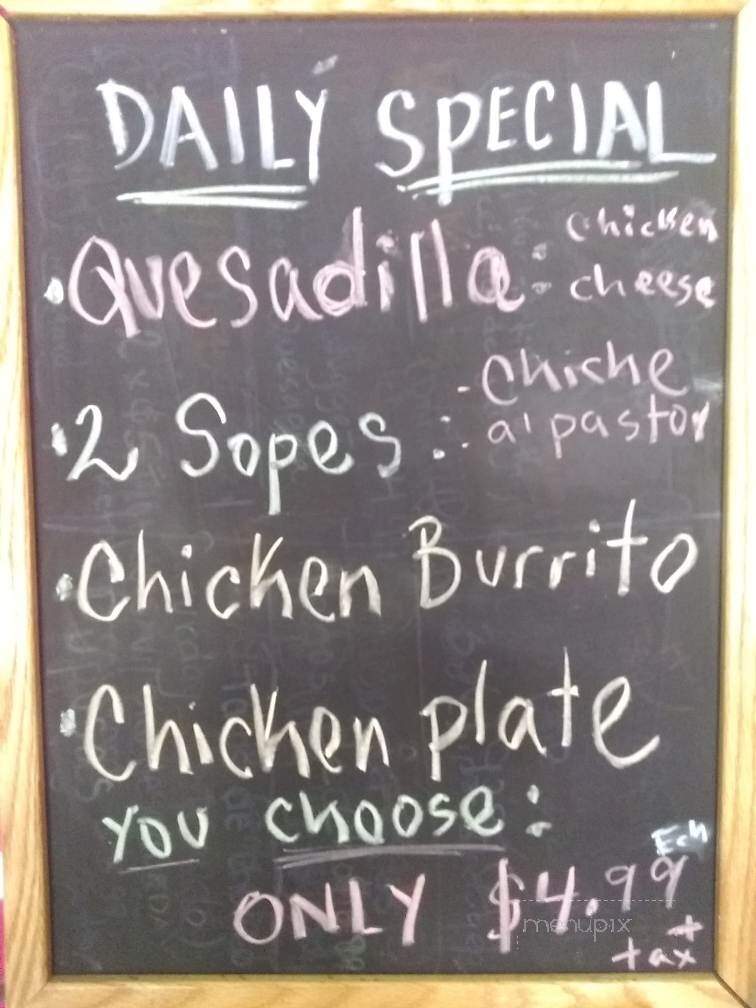 DAILY SPECIAL
• Quesadilla: chicken
cheese
• 2 Sopes: - Chiche
al pastor
• Chicken Burrito
• Chicken plate
you choose:
Ech
ONLY $4.99
+ tax
menupix